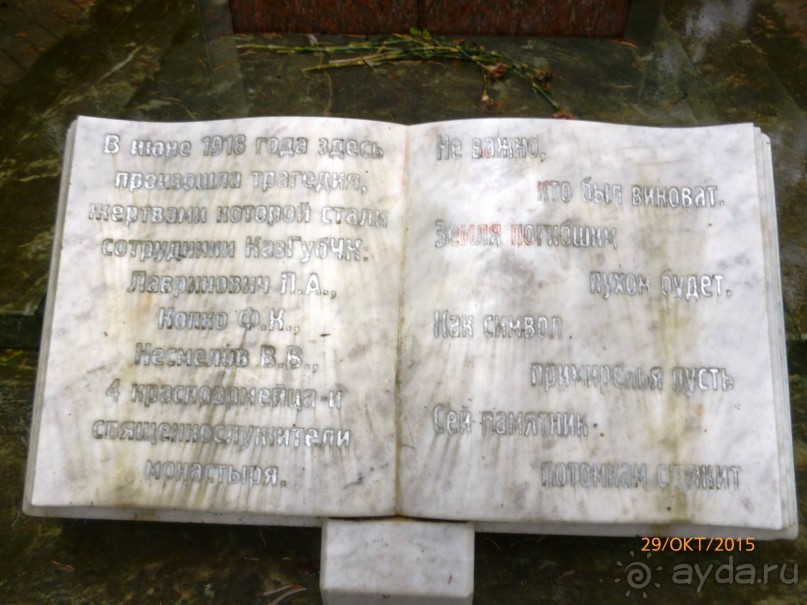 В июне 1918 года здесь
произошла трагедия,
жертвами которой стали
сотрудники КазГубЧК:
Лавринович П.А.,
Копко Ф.К.,
Несмелов В.В.,
4 красноармейца и
священнослужители
монастыря.
Не важно,
кто был виноват.
Земля погибшим
пухом будет.
Как символ
примиренья пусть
Сей памятник
потомкам служит
29/ОКТ/2015
ayda.ru